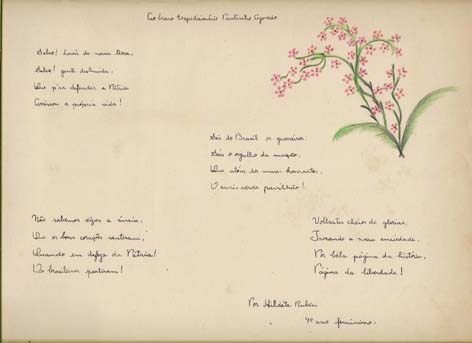 Ao bravo expedicionário Paulinho
Salve! Heróis de nossa terra,
Salve! gente destemida,
Que p'ra defender a Pátria
Arriscou a própria vida!
Sois do Brasil os guerreiros.
Sois o orgulho da nação,
Que além dos mares honrastes,
O auri-verde pavilhão!
Não sabemos dizer a ânsia,
Que os bons corações sentiram,
Quando em defeza da Pátria!
Os brasileiros partiram!
Voltastes cheios de glórias,
a nossa anciedade.
Por béla página da história,
Página da liberdade!
Por Hildéta Rubin
4º ano feminino.